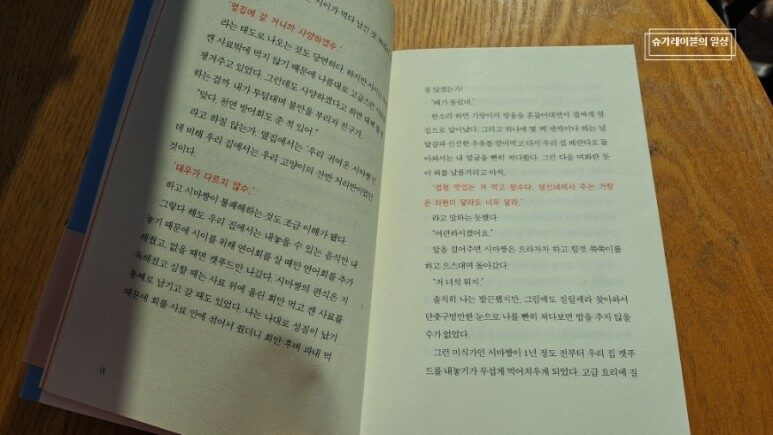 '옆집에 갈 거니까 사양하겠수.'
라는 태도로 나오는 것도 당연하다. 하지만
캔 사료밖에 먹지 않기 때문에 나름대로 고급스런
챙겨주고 있었다. 그런데도 사양하겠다고 하면 대체
하는 걸까. 내가 투덜대며 불만을 부리자 친구가,
"맞다. 천연 방어회도 준 적 있어."
라고 하질 않는가. 옆집에서는 '우리 귀여운 시마짱'
데 비해 우리 집에서는 우리 고양이의 잔반 처리반이었던
것이다.
'대우가 다르지 않수.'
하고 시마짱이 불쾌해하는 것도 조금 이해가 됐다.
그렇다 해도 우리 집에서는 내놓을 수 있는 음식만 내
놓기 때문에 시이를 위해 연어회를 살 때만 연어회를 추가
해줬고, 없을 때면 캣푸드만 나갔다. 시마짱의 편식은 지
독해졌고 심할 때는 사료 위에 올린 회만 먹고 캔 사료를
통째로 남기고 갈 때도 있었다. 나는 나대로 성질이 났기
때문에 회를 사료 안에 섞어서 줬더니 회만 후벼 파내 먹
14
슈가레이블의 일상
질 않겠는가!
"배가 불렀네."
한소리 하면 가랑이의 방울을 흔들어대면서 잽싸게 옆
집으로 날아갔다. 그리고 하나에 몇 백 엔씩이나 하는 날
달걀과 신선한 우유를 얻어먹고 다시 우리 집 베란다로 돌
아와서는 내 얼굴을 빤히 쳐다봤다. 그런 다음 여봐란 듯
이 혀를 날름거리고 마치,
'엄청 맛있는 거 먹고 왔수다. 당신네에서 주는 거랑
은 차원이 달라도 너무 달라.'
라고 말하는 듯했다.
"어련하시겠어요."
말을 걸어주면 시마짱은 으라차차 하고 힘껏 쭉쭉이를
하고 으스대며 돌아갔다.
"저 녀석 뭐지."
솔직히 나는 발끈했지만, 그럼에도 질릴세라 찾아와서
단춧구멍만한 눈으로 나를 빤히 쳐다보면 밥을 주지 않을
수가 없었다.
그런 미식가인 시마짱이 1년 정도 전부터 우리 집 캣푸
드를 내놓기가 무섭게 먹어치우게 되었다. 고급 요리에 질